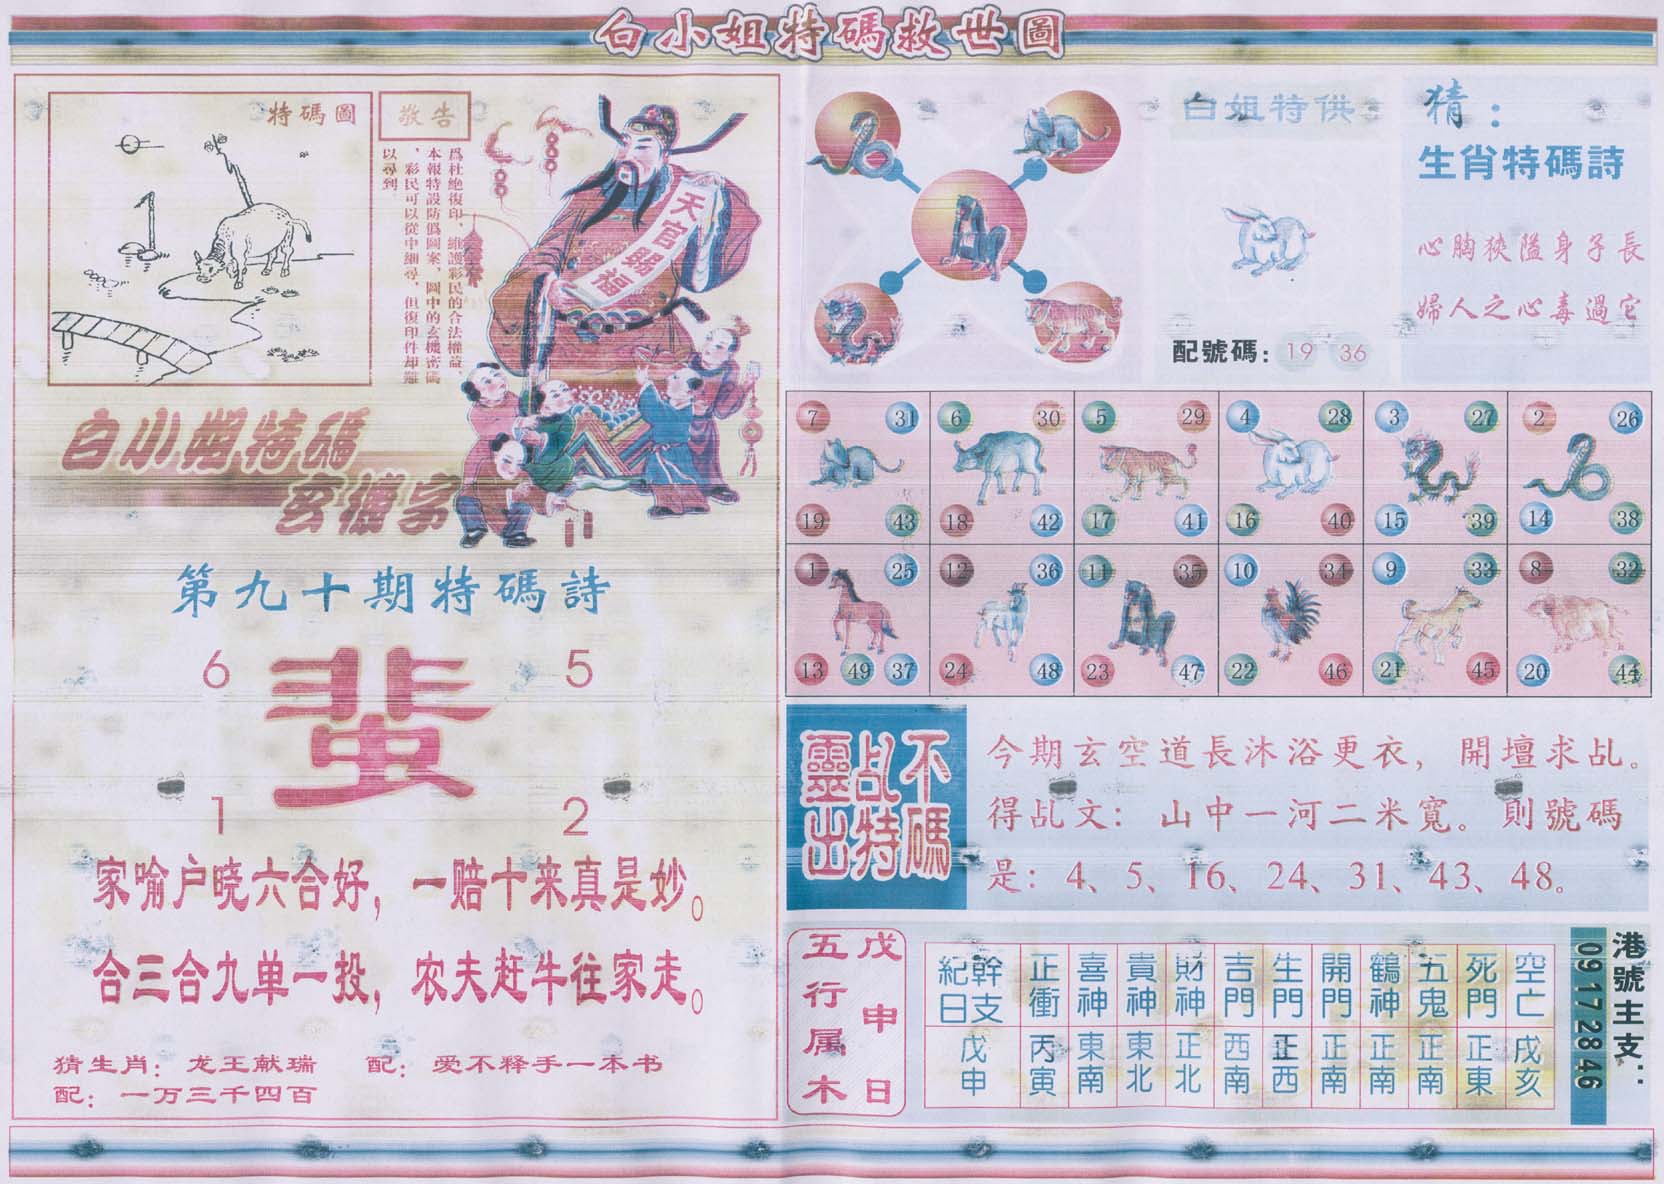 白小姐特碼救世圖
特碼圖
敬告
爲杜絶復印，維護彩民的合法權益，
本報特設防僞圖案，圖中的玄機密碼
，彩民可以從中細尋，但復印件却難
以尋到。
天官賜福
白小姐特碼
玄機字
第九十期特碼詩
6 5
蜚
1 2
家喻户晓六合好，一赔十来真是妙。
合三合九单一投，农夫赶牛往家走。
猜生肖：龙王献瑞 配：爱不释手一本书
配：一万三千四百
白姐特供
配號碼：19 36
猜：
生肖特碼詩
心胸狹隘身子長
婦人之心毒過它
7 31 6 30 5 29 4 28 3 27 2 26
19 43 18 42 17 41 16 40 15 39 14 38
1 25 12 36 11 35 10 34 9 33 8 32
13 49 37 24 48 23 47 22 46 21 45 20 44
不碼
乩特
靈出
今期玄空道長沐浴更衣，開壇求乩。
得乩文：山中一河二米寬。則號碼
是：4、5、16、24、31、43、48。
戊申日
五行属木
幹支紀日 正衝 喜神 貴神 財神 吉門 生門 開門 鶴神 五鬼 死門 空亡
戊申 丙寅 東南 東北 正北 西南 正西 正南 正南 正南 正東 戌亥
港號主支：
09 17 28 46